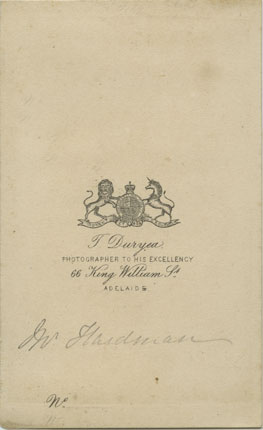 T. Duryea
PHOTOGRAPHER TO HIS EXCELLENCY
66 King William St
ADELAIDE
Mr Hardman
No.